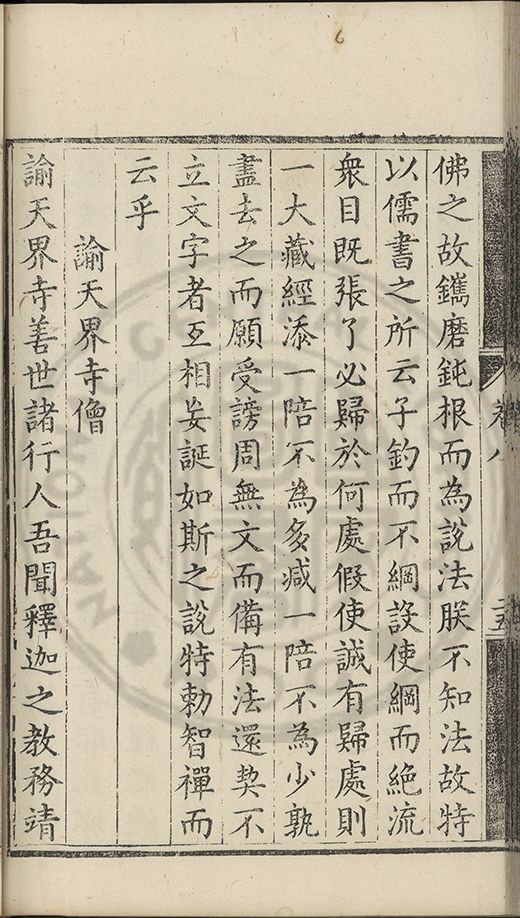 佛之故鐫磨鈍根而為說法朕不知法故特
以儒書之所云子釣而不綱設使綱而絕流
衆目既張了必歸於何處假使誠有歸處則
一大藏經添一陪不為多减一陪不為少孰
盡去之而願受謗周無文而備有法還契不
立文字者互相妄誕如斯之說特勑智禪而
云乎
諭天界寺僧
諭天界寺善世諸行人吾聞釋迦之教務靖
卷八
二十五